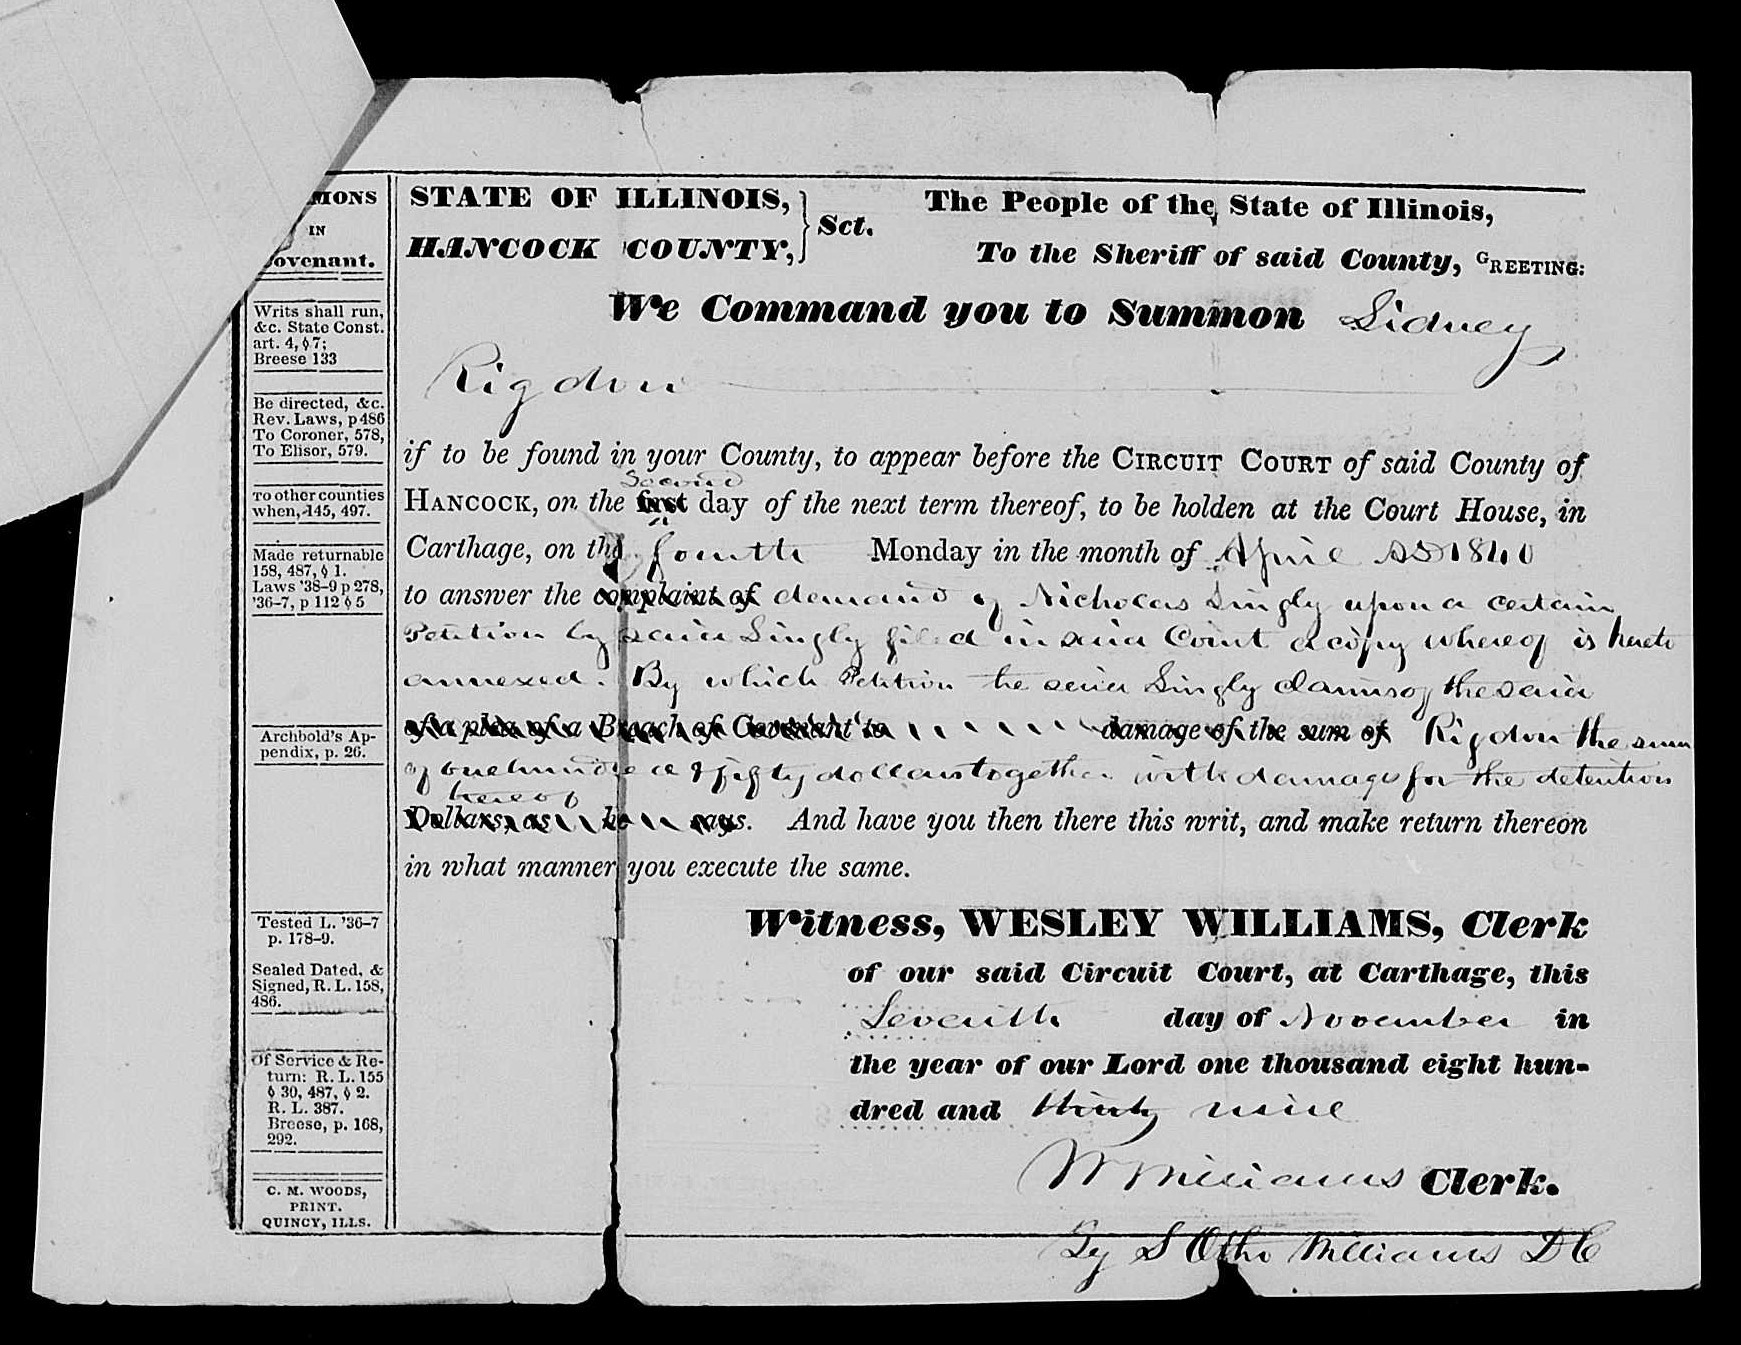 MONS
IN
ovenant.
Writs shall run,
&c. State Const.
art. 4, § 7;
Breese 133
Be directed, &c.
Rev. Laws, p 486
To Coroner, 578,
To Elisor, 579.
To other counties
when, 145, 497.
Made returnable
158, 487, § 1.
Laws '38-9 p 278,
'36-7, p 112 § 5
Archbold's Ap-
pendix, p. 26.
Tested L. '36-7
p. 178-9.
Sealed Dated, &
Signed, R. L. 158,
486.
Of Service & Re-
turn: R. L. 155
§ 30, 487, § 2.
R. L. 387.
Breese, p. 168,
292.
C. M. WOODS,
PRINT.
QUINCY, ILLS.
STATE OF ILLINOIS,
HANCOCK COUNTY,
} Sct.
The People of the State of Illinois,
To the Sheriff of said County, GREETING:
We Command you to Summon Sidney
Rigdon
if to be found in your County, to appear before the CIRCUIT COURT of said County of
Second
HANCOCK, on the first day of the next term thereof, to be holden at the Court House, in
Carthage, on the fourth Monday in the month of April AD 1840
to answer the complaint of demand of Nicholas Singly upon a certain
Petition by said Singly filed in said Court a copy whereof is hereto
annexed. By which Petition the said Singly claims of the said
of a plea of a Breach of Covenant to damage of the sum of Rigdon the sum
of one hundred & fifty dollars together with damage for the detention
hereof
Dollars, as he says. And have you then there this writ, and make return thereon
in what manner you execute the same.
Witness, WESLEY WILLIAMS, Clerk
of our said Circuit Court, at Carthage, this
Seventh day of November in
the year of our Lord one thousand eight hun-
dred and thirty nine
W Williams Clerk.
By S Otho Williams D C